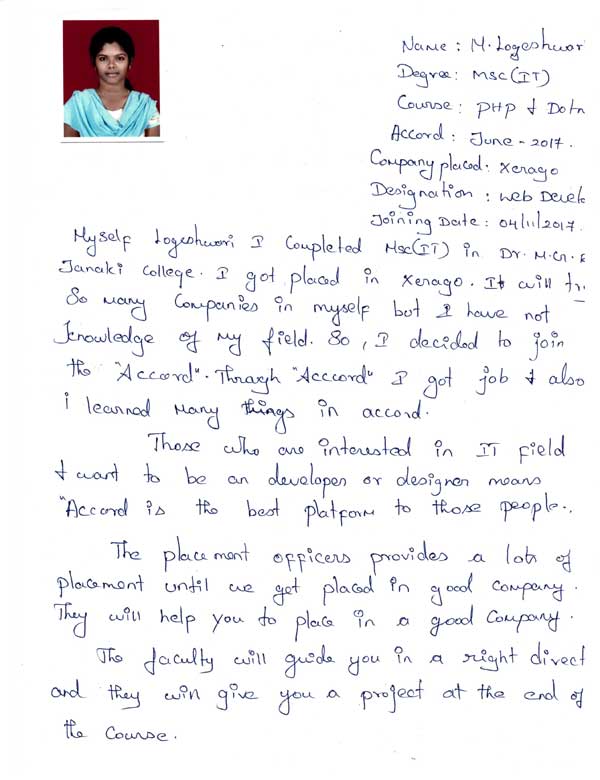 Name : M. Logeshwor
Degree : MSC (IT)
Course : PHP & Dotn
Accord : June - 2017.
Company placed : Xerago
Designation : web Devel
Joining Date : 04/11/2017.
Myself Logeshwori I Completed Msc(IT) in Dr. M.G.R
Janaki College. I got placed in Xerago. It will tr
So many Companies in myself but I have not
knowledge of my field. So, I decided to join
the "Accord". Through "Acccord" I got job & also
i learned many things in accord.
Those who are interested in IT field
& want to be an developer or designer means
"Accord is the best platform to those people..
The placement officers provides a lots of
placement until we get placed in good company.
They will help you to place in a good company.
The faculty will guide you in a right direct
and they will give you a project at the end of
the course.